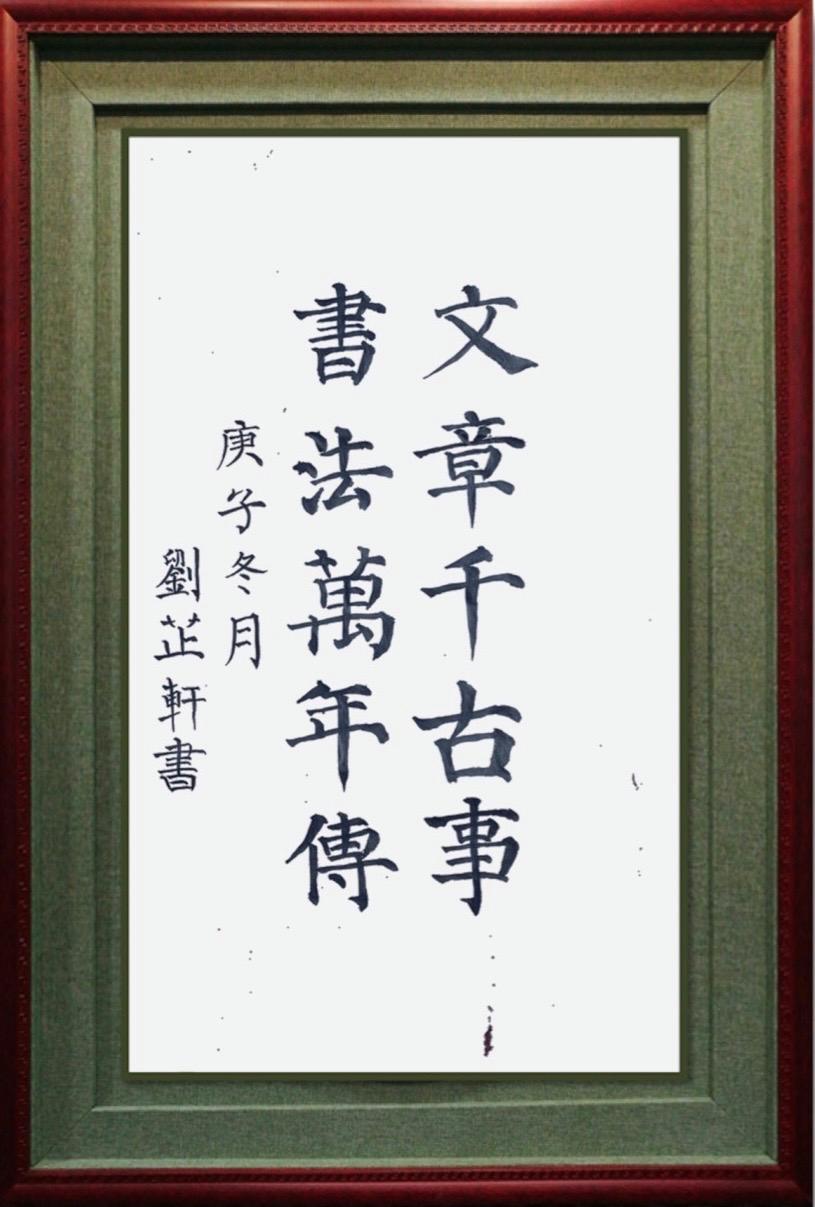 文章千古事
書法萬年傳
庚子冬月
劉芷軒書